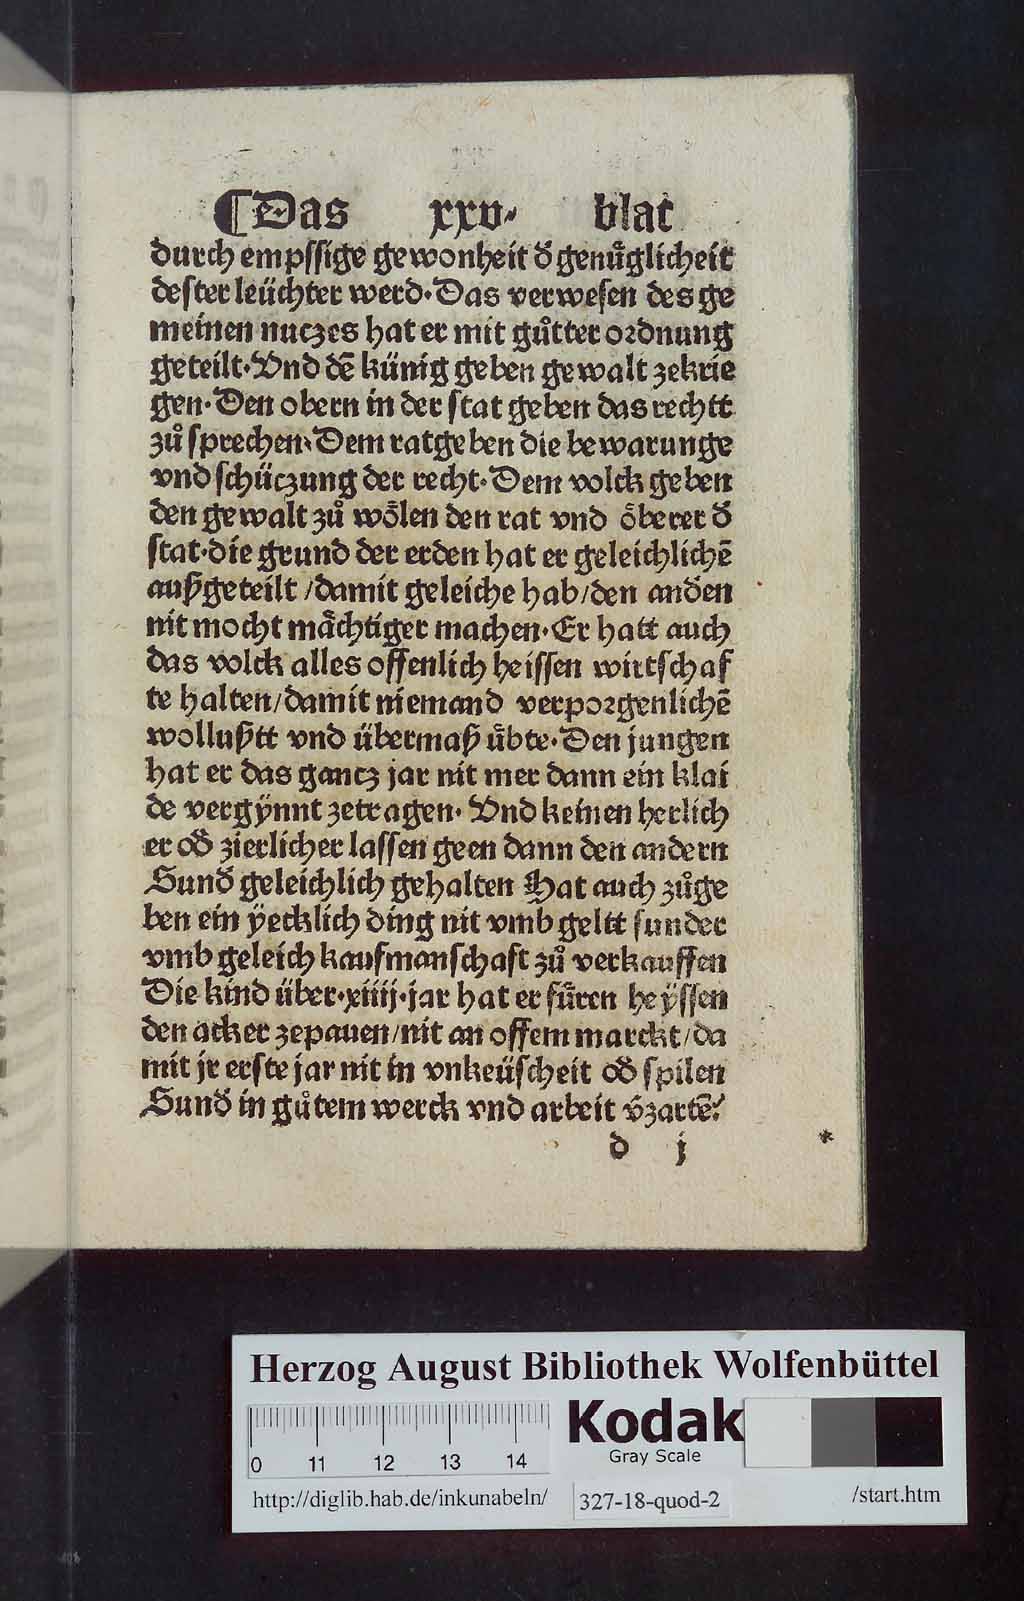 ¶Das xxv· blat
durch empssige gewonheit d̕ genůglicheit
dester leüchter werd·Das verwesen des ge
meinen nuczes hat er mit gůtter ordnung
geteilt·Vnd dē künig geben gewalt zekrie
gen·Den obern in der stat geben das rechtt
zů sprechen·Dem ratgeben die bewarunge
vnd schüczung der recht·Dem volck geben
den gewalt zů wölen den rat vnd öberer d̕
stat·die grund der erden hat er geleichlichē
außgeteilt /damit geleiche hab/den anden
nit mocht mächtiger machen·Er hatt auch
das volck alles offenlich heissen wirtschaf
te halten/damit niemand verporgenlichē
wollußtt vnd übermaß übte·Den jungen
hat er das gancz jar nit mer dann ein klai
de vergÿnnt zetragen· Vnd keinen herlich
er od̕ zierlicher lassen geen dann den andern
Sund̕ geleichlich gehalten Hat auch zůge
ben ein ÿecklich ding nit vmb geltt sunder
vmb geleich kaufmanschaft zů verkauffen
Die kind über·xiiij·jar hat er füren heÿssen
den acker zepauen/nit an offem marckt/da
mit jr erste jar nit in vnkeüscheit od̕ spilen
Sund̕ in gůtem werck vnd arbeit v̕zartē·
d j
Herzog August Bibliothek Wolfenbüttel
0 11 12 13 14
Kodak
Gray Scale
http://diglib.hab.de/inkunabeln/ 327-18-quod-2 /start.htm